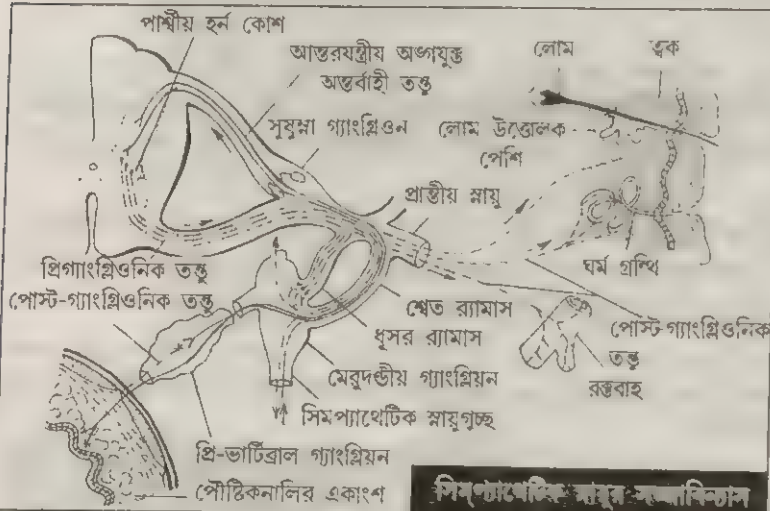 পার্শ্বীয় হর্ন কোশ
আন্তরযন্ত্রীয় অঙ্গযুক্ত
অন্তর্বাহী তন্তু
সুষুম্না গ্যাংগ্লিওন
লোম
ত্বক
লোম উত্তোলক
পেশি
প্রান্তীয় স্নায়ু
ঘর্ম গ্রন্থি
প্রিগ্যাংগ্লিওনিক তন্তু
পোস্ট-গ্যাংগ্লিওনিক তন্তু
শ্বেত র‍্যামাস
ধূসর র‍্যামাস
পোস্ট-গ্যাংগ্লিওনিক
তন্তু
রক্তবাহ
মেরুদন্ডীয় গ্যাংগ্লিয়ন
সিমপ্যাথেটিক স্নায়ুগুচ্ছ
প্রি-ভার্টিব্রাল গ্যাংগ্লিয়ন
পৌষ্টিকনালির একাংশ
সিমপ্যাথেটিক স্নায়ুর